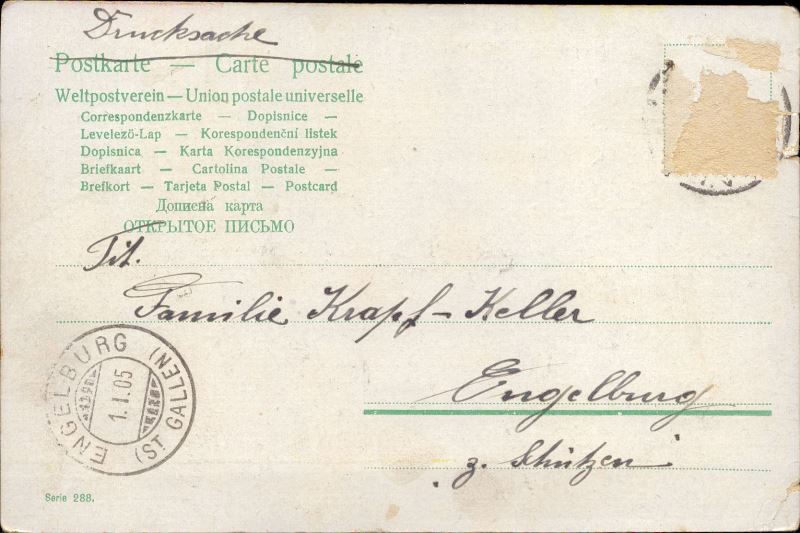 Drucksache
Postkarte — Carte postale
Weltpostverein — Union postale universelle
Correspondenzkarte — Dopisnice —
Levelező-Lap — Korespondenční listek
Dopisnica — Karta Korespondenzyjna
Briefkaart — Cartolina Postale —
Brefkort — Tarjeta Postal — Postcard
Дописна карта
ОТКРЫТОЕ ПИСЬМО
Tit.
Familie Krapf-Keller
Engelburg
z. Schützen
ENGELBURG (ST GALLEN)
1.I.05
Serie 288.